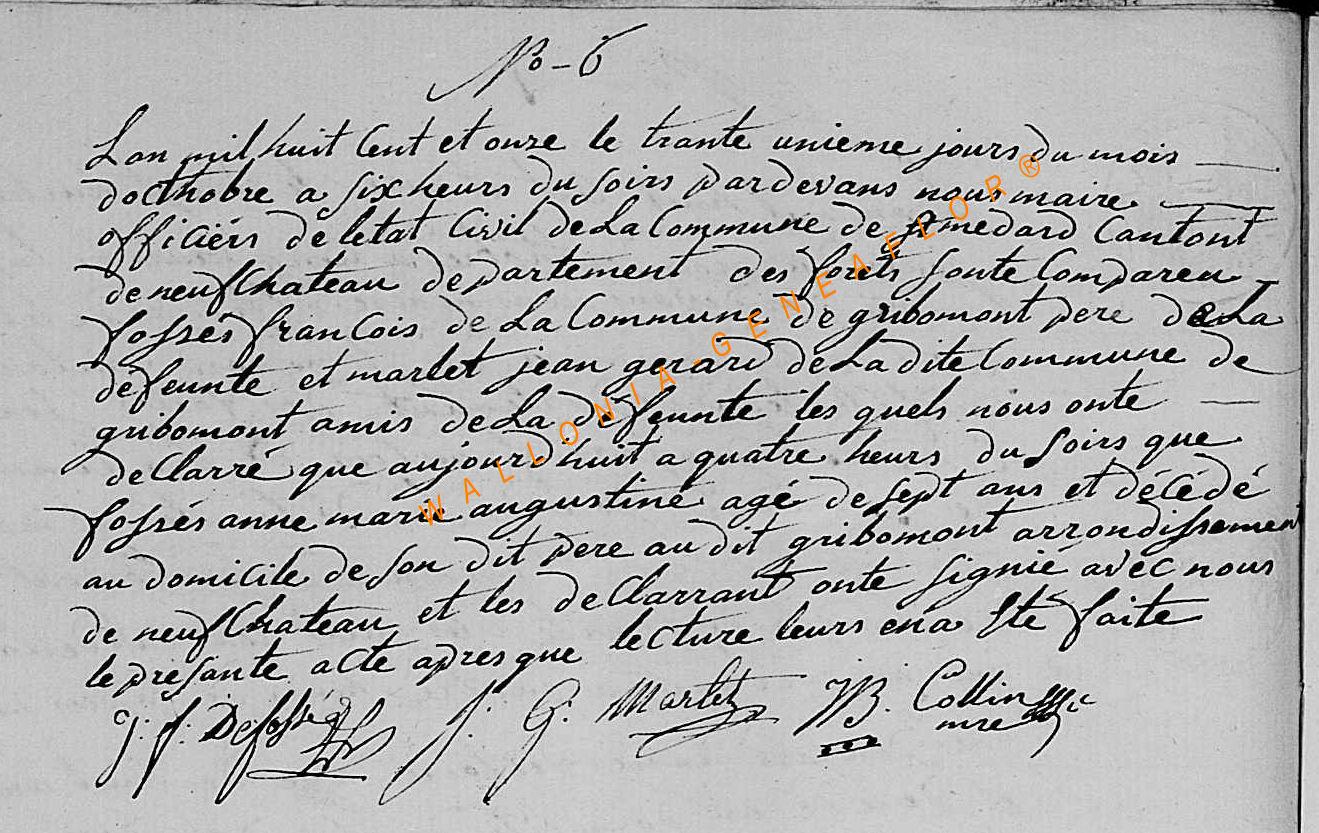 No – 6
Lan mil huit Cent et onze le trante unieme jours du mois
docthobre a six heurs du soirs pardevans nous maire
officiérs de letat Civil de La Commune de st medard Cantont
de neufChateau departement des forêts sonte Compareu
fossés francois de La Commune de gribomont pere de La
defeunte et marlet jean gerard de La dite Commune de
gribomont amis de La defeunte les quels nous onte
deClarré que aujourdhuit a quatre heurs du soirs que
fossés anne marie augustine agé de sept ans et décédé
au domicile de son dit pere au dit gribomont arrondissement
de neufChateau et les deClarrant onte signié avéc nous
le présante acte apres que lecture leurs ena Eté faite
j: f: Defossés J: G: Marlet JB. Collin
mre
WALLONIA-GENEAFLOR®